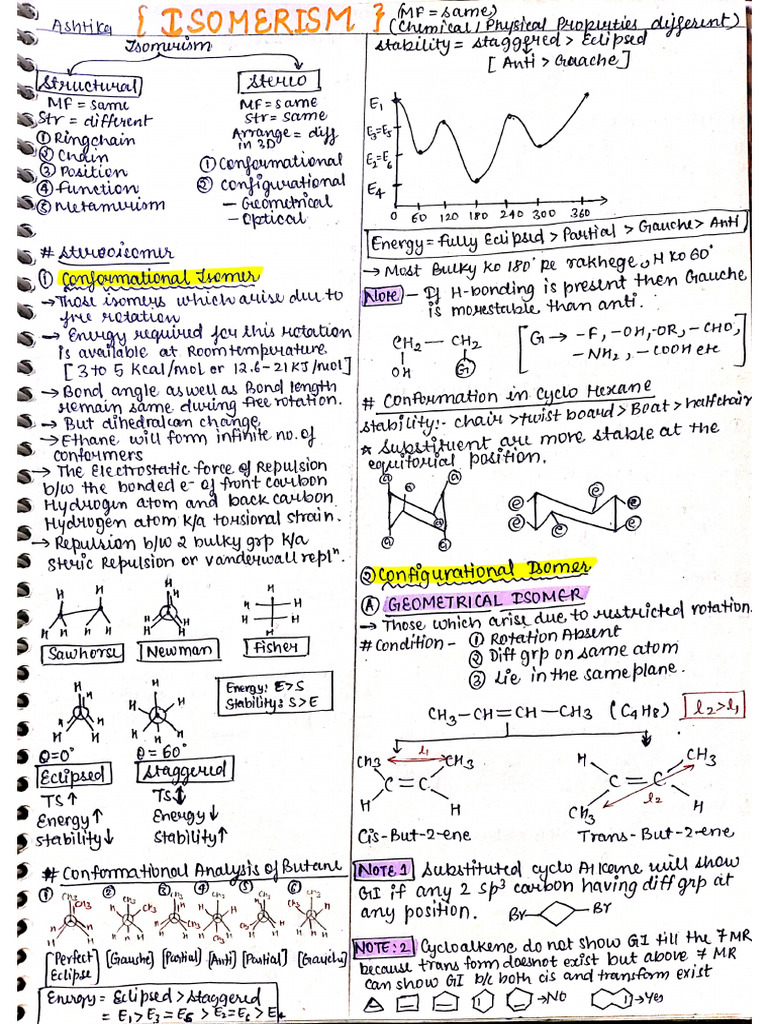 Ashtika { ISOMERISM } (MF = same)
(Chemical / Physical Properties different)
Isomerism
Structural
MF = same
Str = different
① Ringchain
② Chain
③ Position
④ Function
⑤ Metamerism
Stereo
MF = same
Str = same
Arrange = diff
in 3D
① Conformational
② Configurational
— Geometrical
— Optical
# Stereoisomer
① Conformational Isomer
→ Those isomers which arise due to
free rotation
→ Energy required for this rotation
is available at Room temprature
[3 to 5 Kcal/mol or 12.6-21 KJ/mol]
→ Bond angle as well as Bond length
remain same during free rotation.
→ But dihedral can change
→ Ethane will form infinite no. of
conformers
→ The Electrostatic force of Repulsion
b/w the bonded e- of front carbon
Hydrogen atom and back carbon
Hydrogen atom k/a torsional strain.
→ Repulsion b/w 2 bulky grp k/a
steric Repulsion or vanderwall repln.
H H H H H H
Sawhorse
H H H H H H
Newman
H H H H H H
Fisher
H H H H H H
θ=0°
Eclipsed
TS↑
Energy↑
Stability↓
H H H H H H
θ = 60°
Staggered
TS↓
Energy↓
Stability↑
Energy: E>S
Stability: S>E
# Conformational Analysis of Butane
① ② ③ ④ ⑤ ⑥
[Perfect Eclipse] [Gauche] [Partial] [Anti] [Partial] [Gauche]
Energy = Eclipsed > Staggered
= E1 > E3 = E5 > E2 = E6 > E4
Stability = Staggered > Eclipsed
[Anti > Gauche]
E1
E3=E5
E2=E6
E4
0 60 120 180 240 300 360
Energy = Fully Eclipsed > Partial > Gauche > Anti
→ Most Bulky ko 180° pe rakhege, H ko 60°
Note – If H-bonding is present then Gauche
is more stable than anti.
CH2 — CH2
OH G
[G → -F, -OH, -OR, -CHO,
-NH2, -COOH etc]
# Conformation in Cyclo Hexane
Stability:- chair > twist board > Boat > half chair
* Substituent are more stable at the
equitorial position.
a a a a a a
e e e e e e
② Configurational Isomer
Ⓐ GEOMETRICAL ISOMER
→ Those which arise due to restricted rotation.
# Condition – ① Rotation Absent
② Diff grp on same atom
③ Lie in the same plane.
CH3-CH=CH-CH3 (C4H8) l2>l1
CH3 l1 CH3
C=C
H H
Cis-But-2-ene
H CH3
C=C
CH3 l2 H
Trans-But-2-ene
NOTE 1 Substituted cyclo Alkane will show
GI if any 2 sp3 carbon having diff grp at
any position. Br Br
NOTE: 2 Cycloalkene do not show GI till the 7 MR
because trans form doesnot exist but above 7 MR
can show GI b/c both cis and transform exist
→NO →Yes